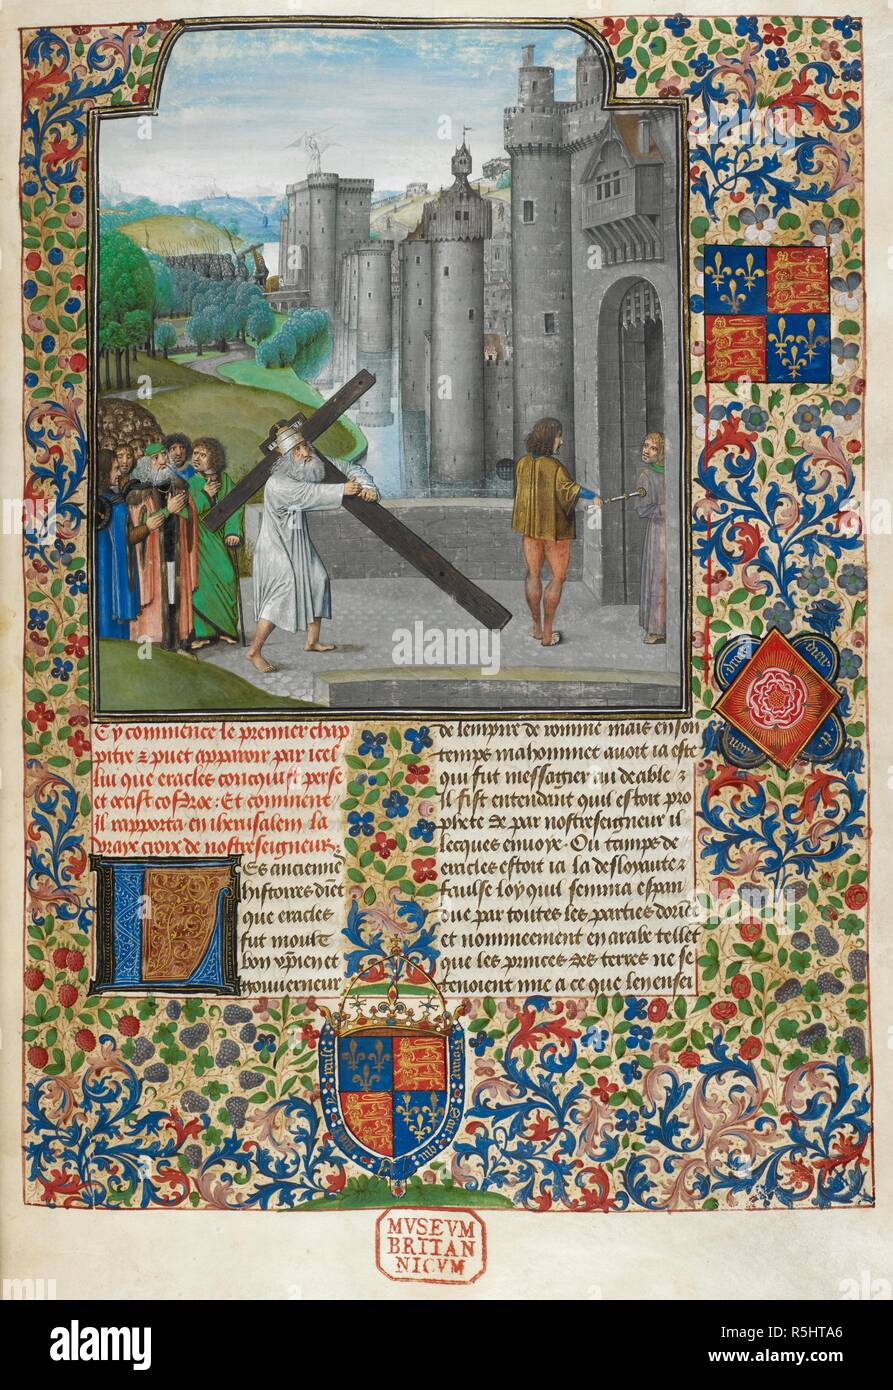 Cy commence le premier chap
pitre & puet apparoir par icel
lui que eracles conquist perse
et occist cosdroe: Et comment
Il rapporta en iherusalem la
vraye croix de nostreseigneur:
LEs anciennes
histoires dient
que eracles
fut moult
bon xp̄ien et
gouuerneur
de lempire de romme mais en son
temps mahommet auoit ia este
qui fut messagier au deable &
Il fist entendant quil estoit pro
phete & de par nostreseigneur il
lecques enuoye. Ou temps de
eracles estoit ia la desloyaute &
faulse loy quil sema espan
due par toutes les parties dorient
et nommeement en arabe tellet
que les princes des terres ne se
tenoient mie a ce que len ensei
dieu
et
mon
droit
MVSEVM
BRITAN
NICVM
alamy
Image ID: R5HTA6
www.alamy.com